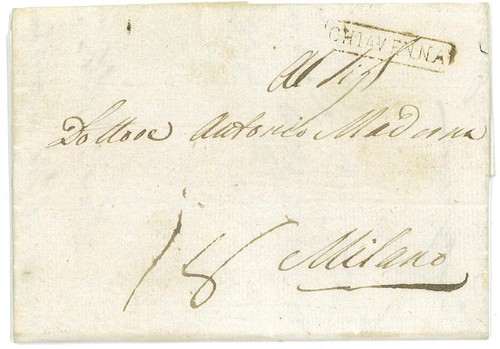 CHIAVENNA
Al Sig.r
Dottore Antonio Maderna
18 Milano